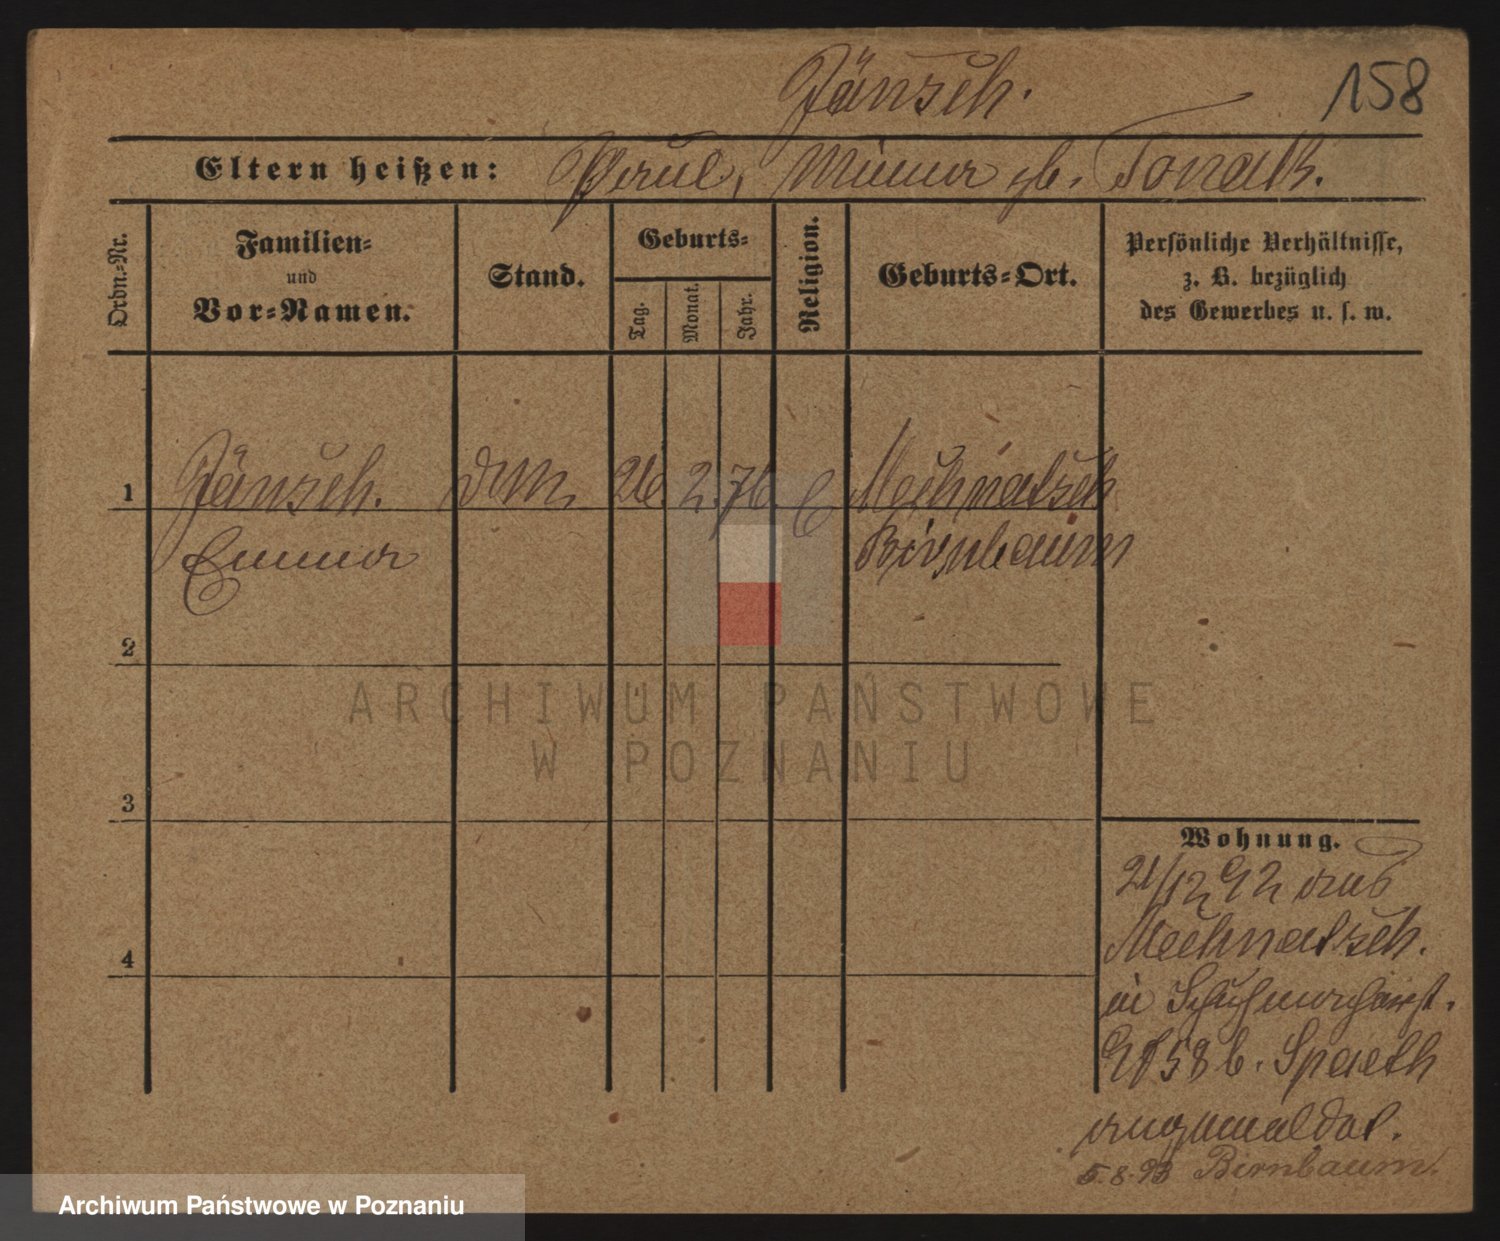 Jänsch.
158
Eltern heißen: Paul, Minna gb. Tonak.
Ordn.-Nr.
Familien-
und
Vor-Namen.
Stand.
Geburts-
Tag.
Monat.
Jahr.
Religion.
Geburts-Ort.
Persönliche Verhältnisse,
z. B. bezüglich
des Gewerbes u. s. w.
1 Jänsch. 26. 2. 76. Mechnatsch
Emma Birnbaum
2
3
4
Wohnung.
21/12 92 aus
Mechnatsch.
in
58 b. Spaeth
angemeldet.
5.8.93 Birnbaum.
ARCHIWUM PAŃSTWOWE
W POZNANIU
Archiwum Państwowe w Poznaniu